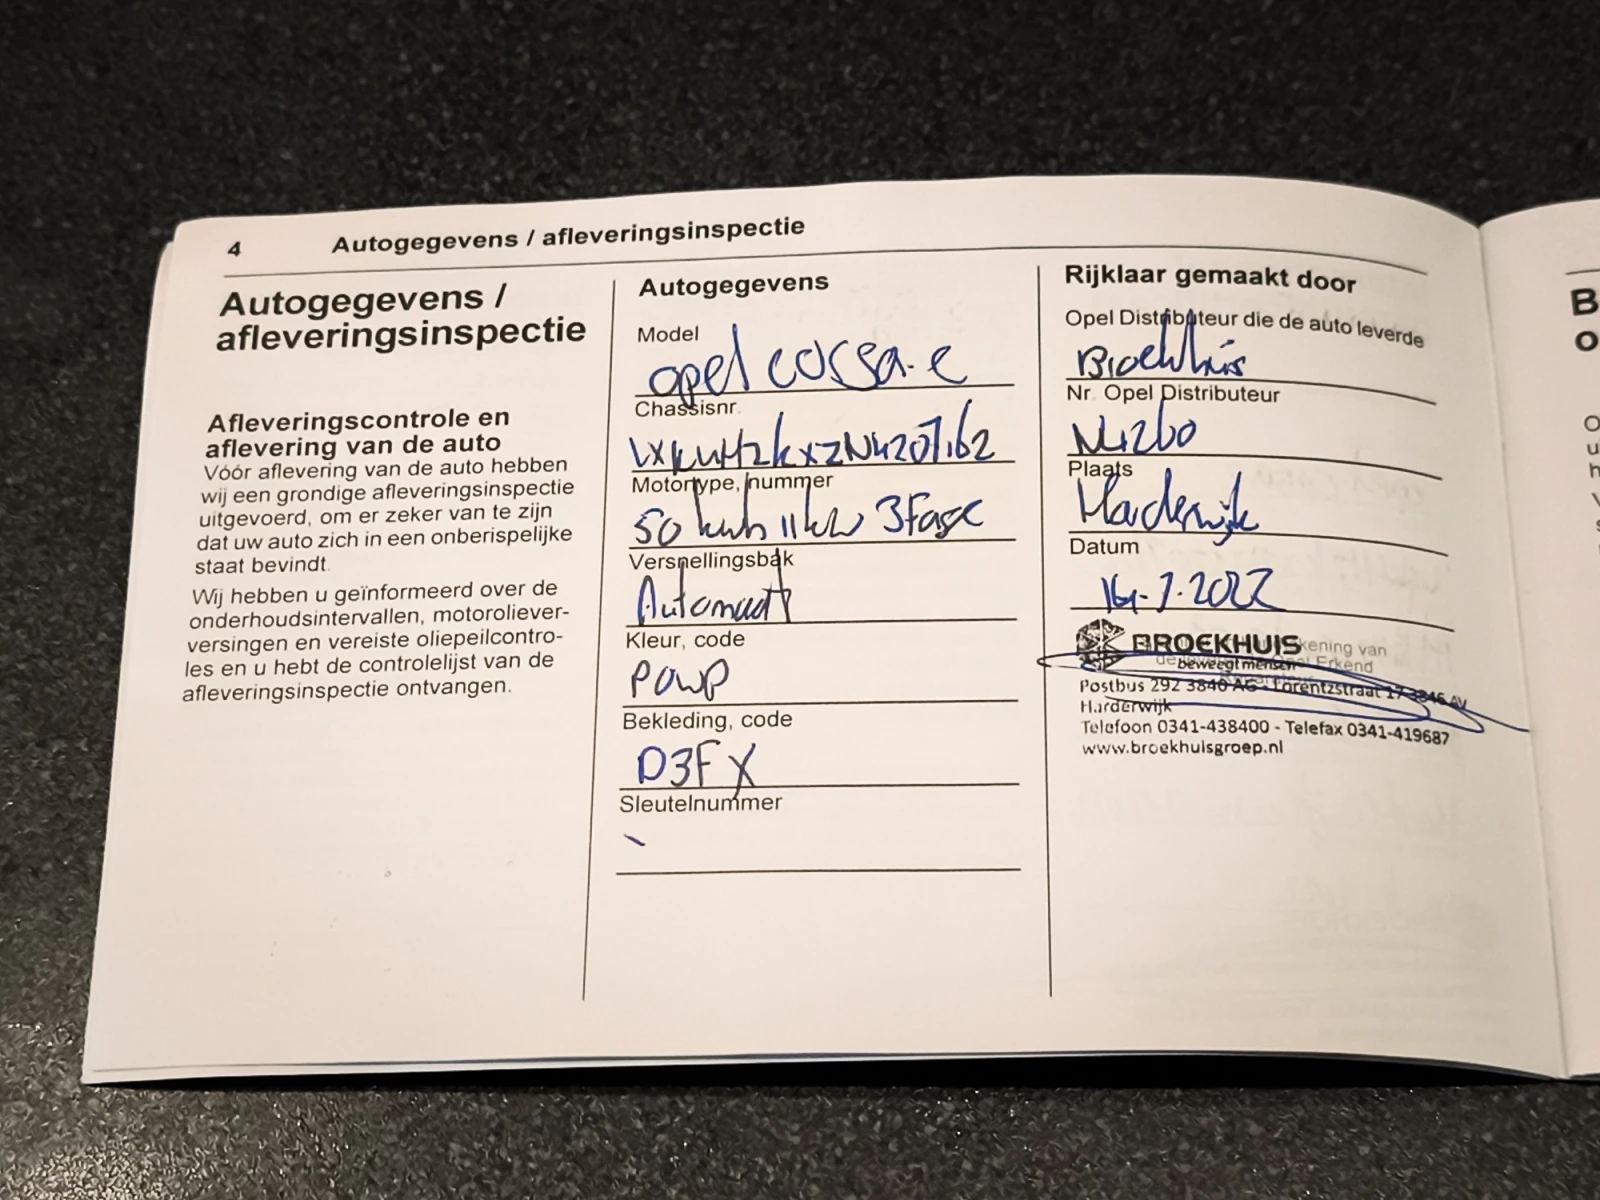 4 Autogegevens / afleveringsinspectie
Autogegevens /
afleveringsinspectie
Afleveringscontrole en
aflevering van de auto
Vóór aflevering van de auto hebben
wij een grondige afleveringsinspectie
uitgevoerd, om er zeker van te zijn
dat uw auto zich in een onberispelijke
staat bevindt.
Wij hebben u geïnformeerd over de
onderhoudsintervallen, motoroliever-
versingen en vereiste oliepeilcontro-
les en u hebt de controlelijst van de
afleveringsinspectie ontvangen.
Autogegevens
Model
opel corsa-e
Chassisnr.
Motortype, nummer
50 kwh 11kw 3Fase
Versnellingsbak
Automaat
Kleur, code
POWP
Bekleding, code
D3FX
Sleutelnummer
Rijklaar gemaakt door
Opel Distributeur die de auto leverde
Broekhuis
Nr. Opel Distributeur
Plaats
Harderwijk
Datum
BROEKHUIS
kening van
beweegt mensen
Erkend
Postbus 292 3840 AG - Lorentzstraat 17 3846 AV
Harderwijk
Telefoon 0341-438400 - Telefax 0341-419687
www.broekhuisgroep.nl
B
o